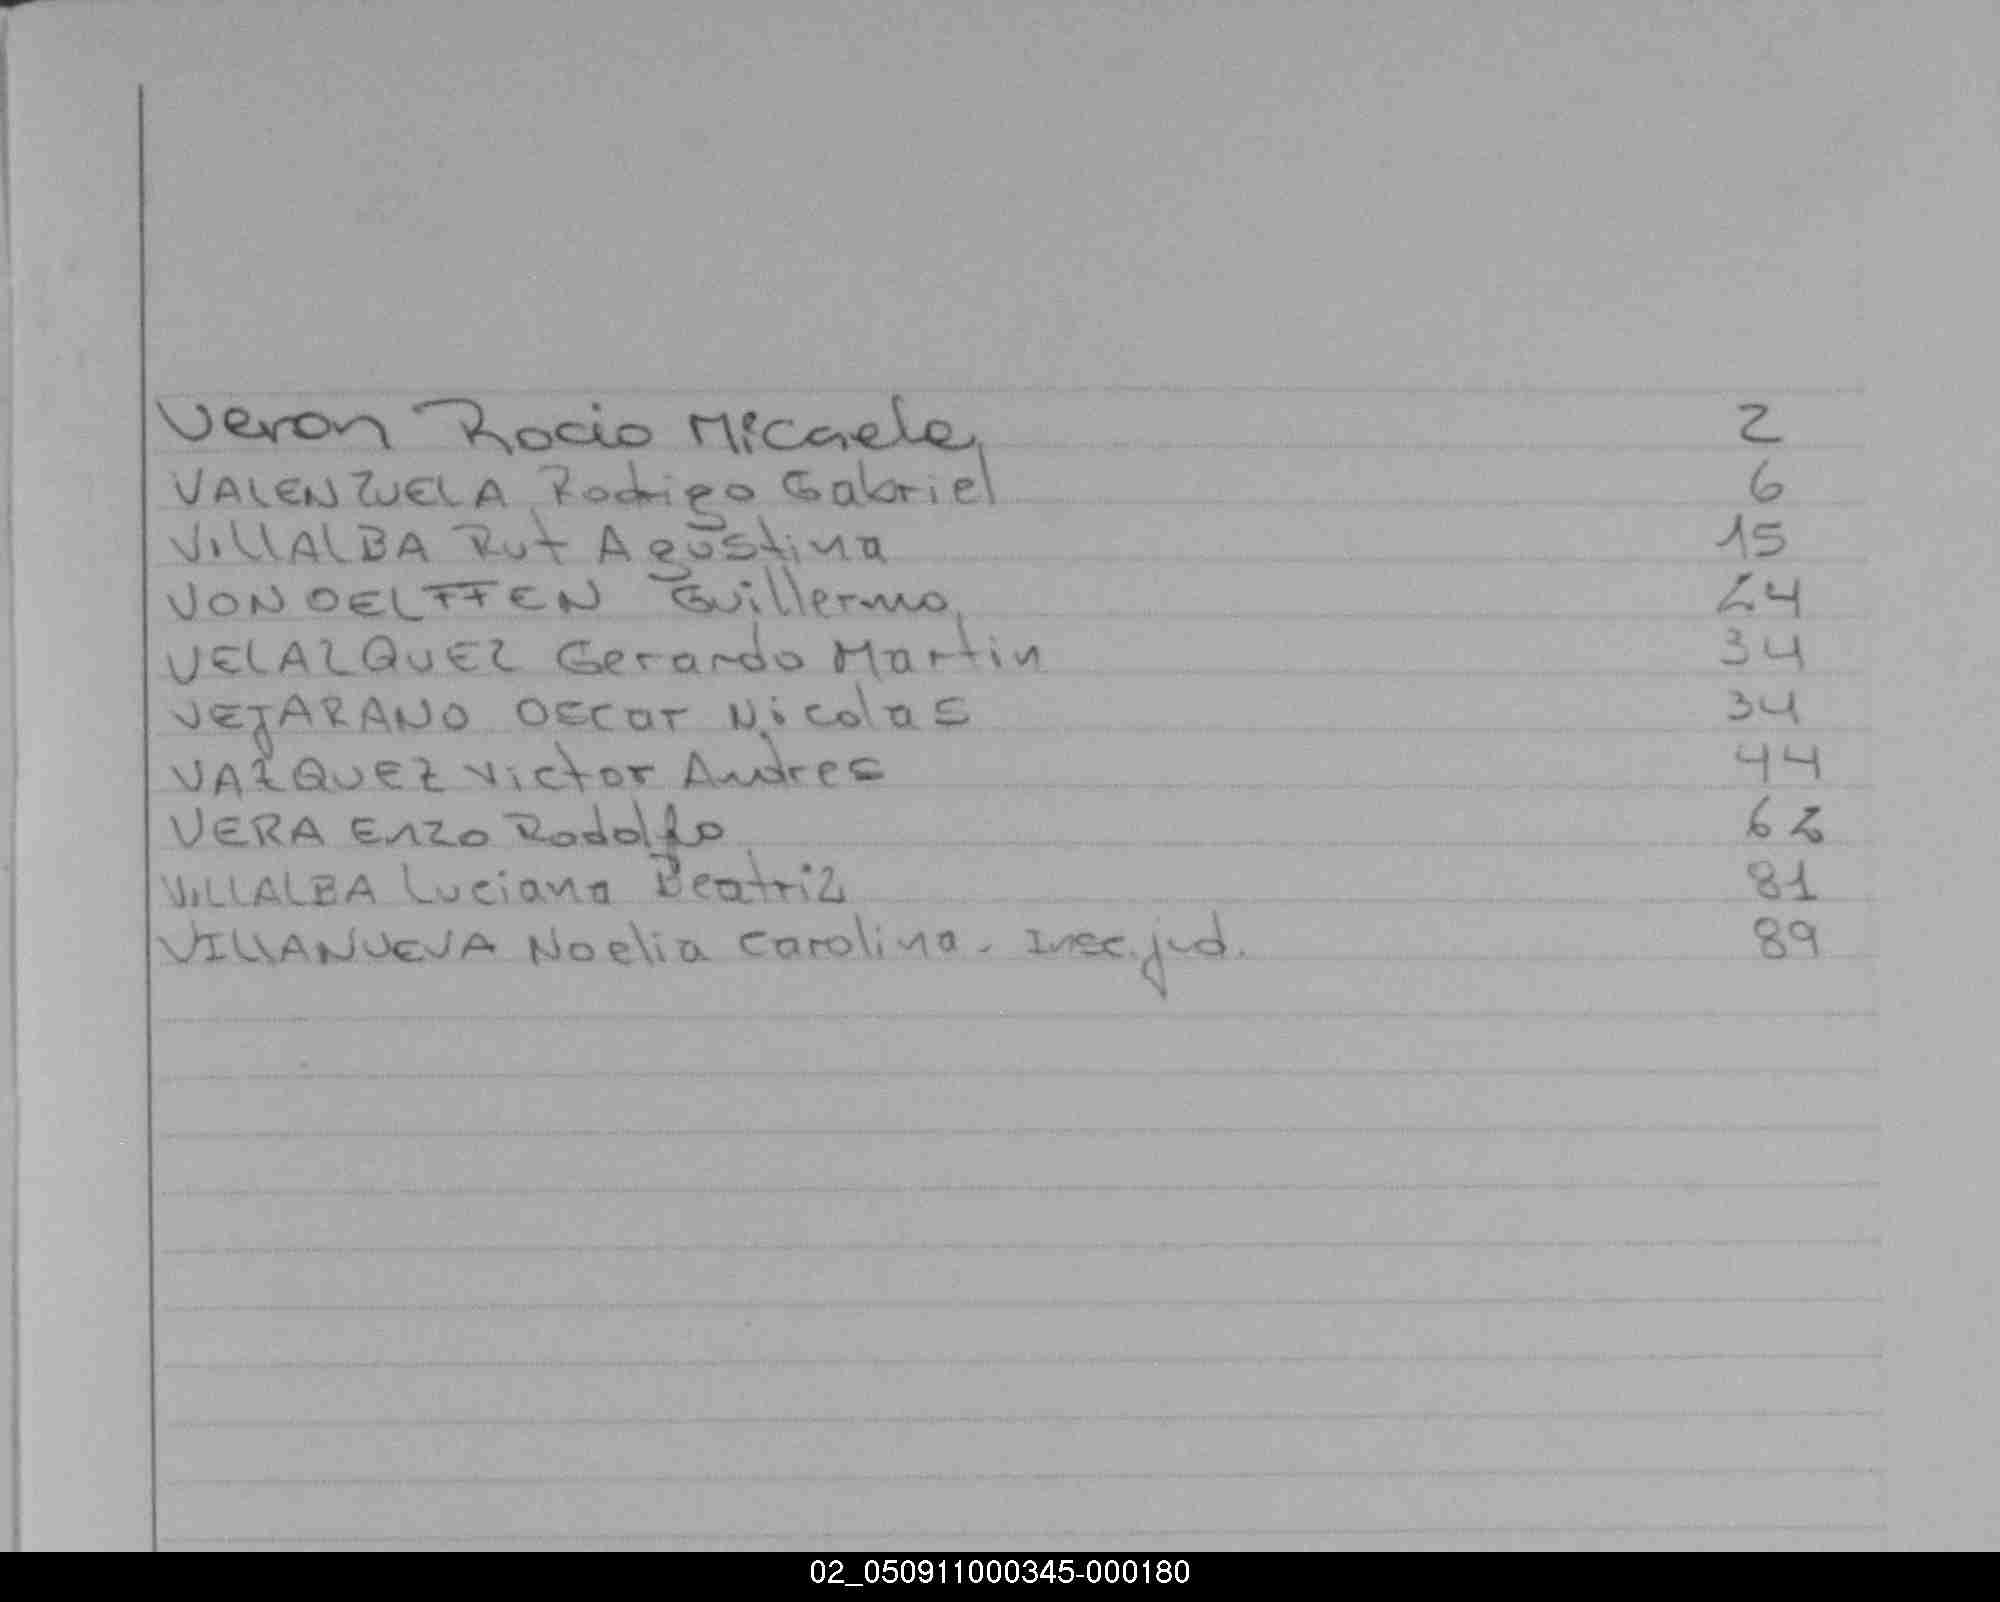 Veron Rocio Micaela 2
VALENZUELA Rodrigo Gabriel 6
VILLALBA Rut Agustina 15
VON OELFFEN Guillermo 24
VELAZQUEZ Gerardo Martin 34
VEJARANO Oscar Nicolas 34
VAZQUEZ Victor Andres 44
VERA Enzo Rodolfo 62
VILLALBA Luciana Beatriz 81
VILLANUEVA Noelia Carolina - Insc. jud. 89
02_050911000345-000180